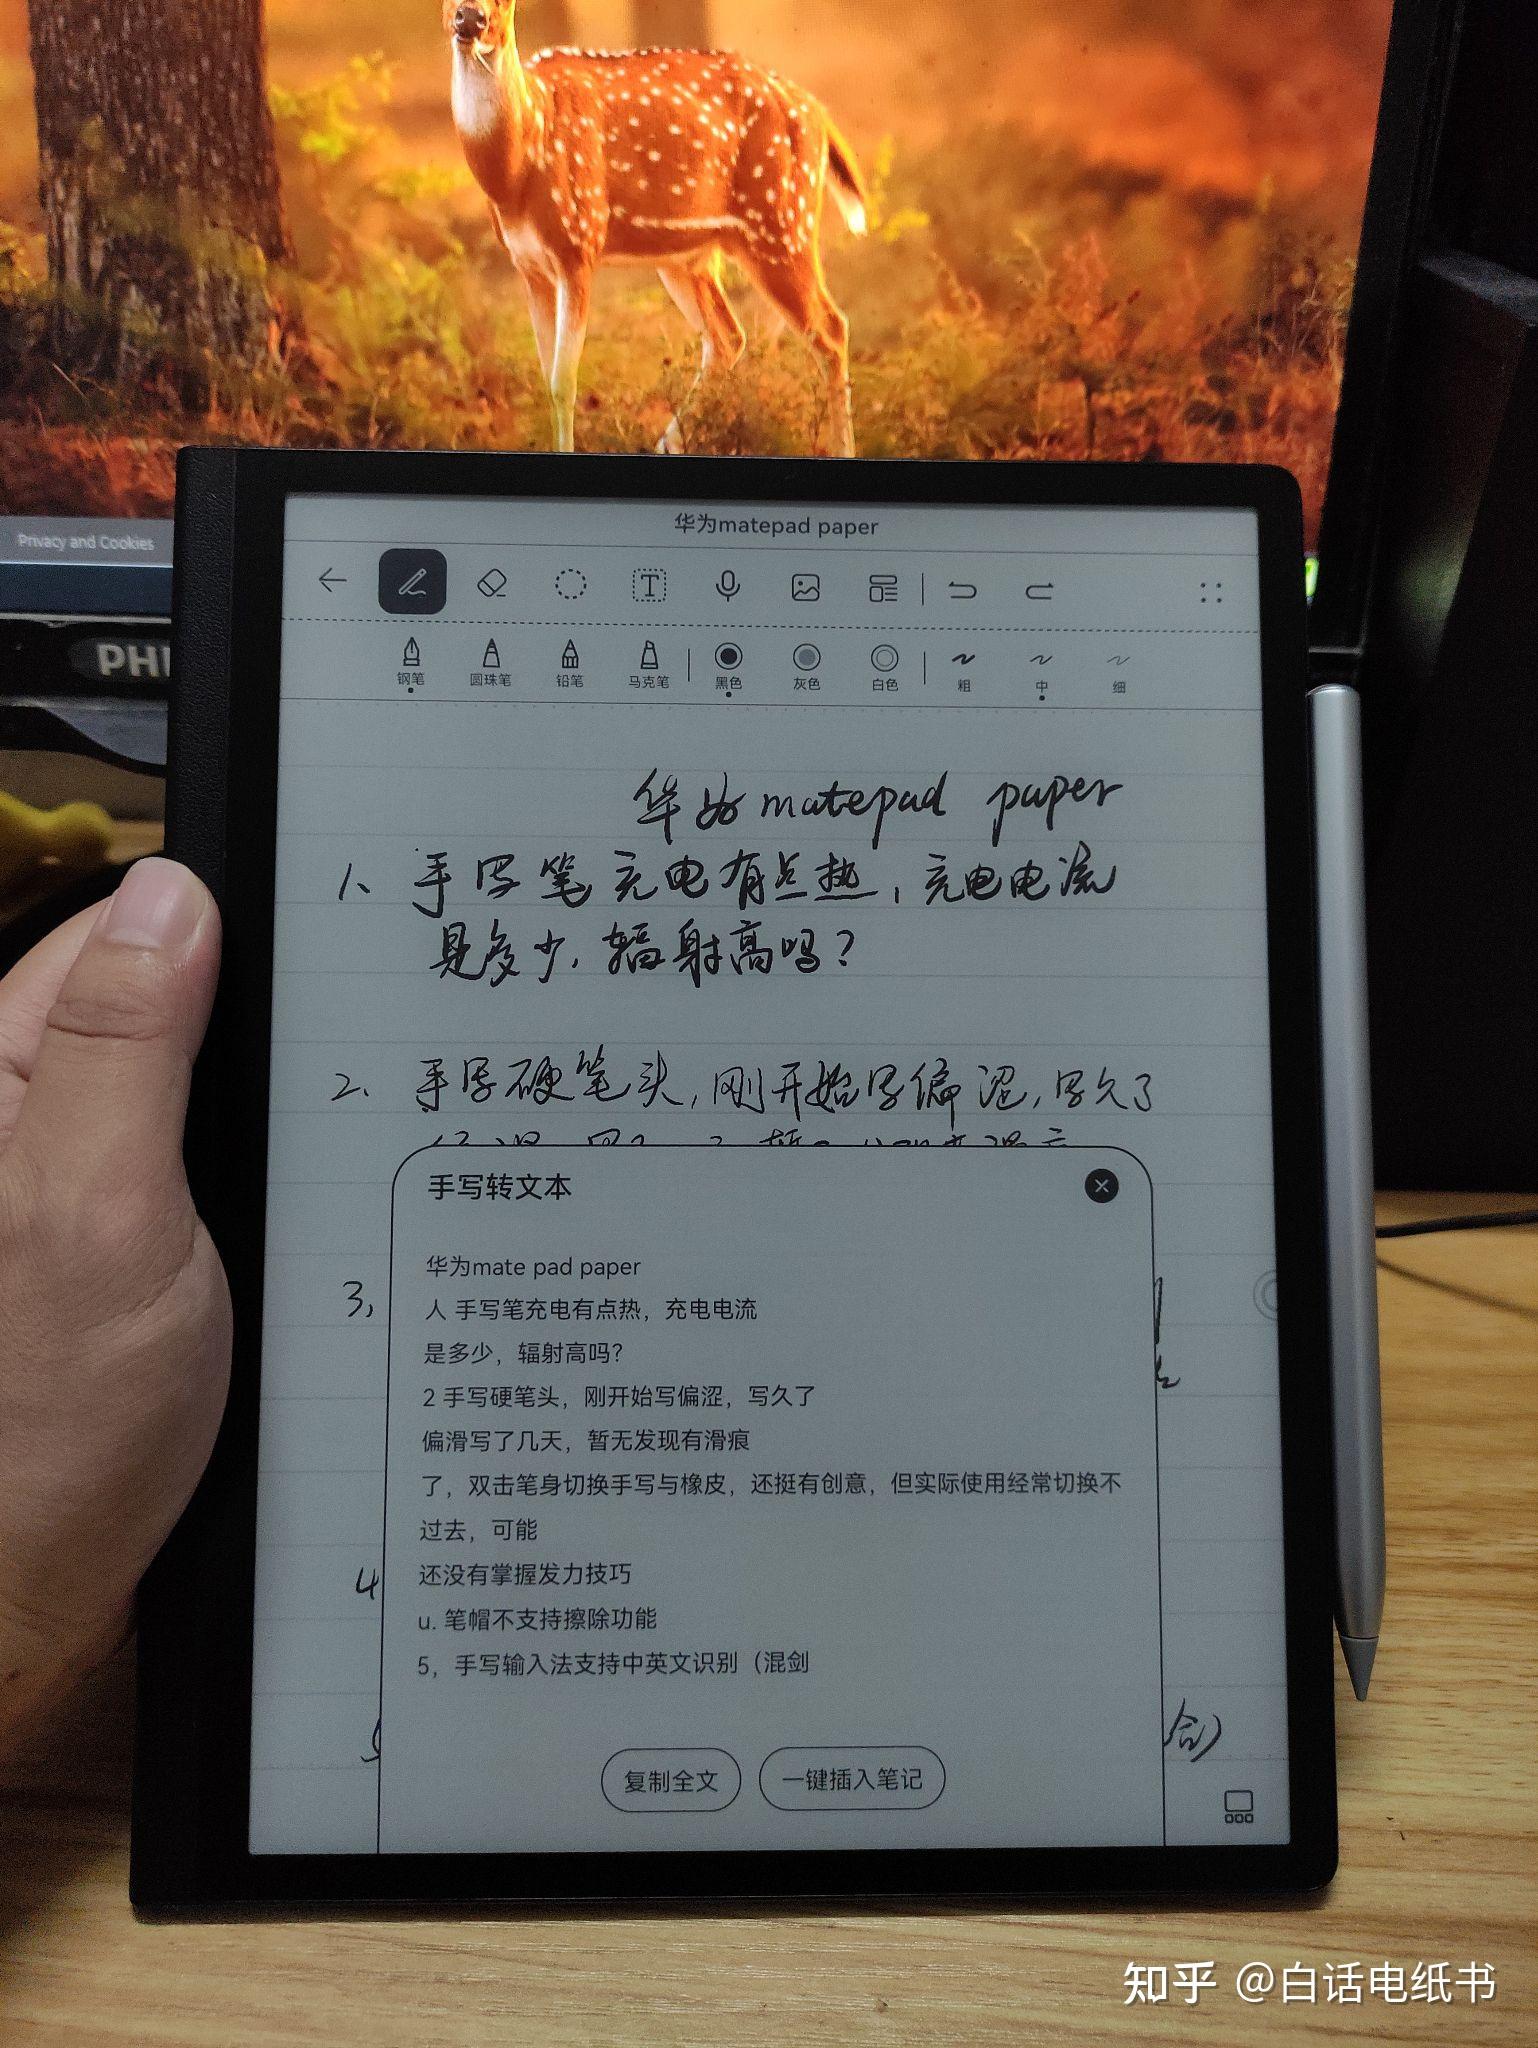 Privacy and Cookies
PHI
华为matepad paper
钢笔 圆珠笔 铅笔 马克笔 黑色 灰色 白色 粗 中 细
华为matepad paper
1、手写笔充电有点热，充电电流
是多少，辐射高吗？
2、手写硬笔头，刚开始写偏涩，写久了
手写转文本
华为mate pad paper
人 手写笔充电有点热，充电电流
是多少，辐射高吗?
2 手写硬笔头，刚开始写偏涩，写久了
偏滑写了几天，暂无发现有滑痕
3,
了，双击笔身切换手写与橡皮，还挺有创意，但实际使用经常切换不
过去，可能
还没有掌握发力技巧
4
u. 笔帽不支持擦除功能
5，手写输入法支持中英文识别（混剑
合）
复制全文 一键插入笔记
知乎 @白话电纸书